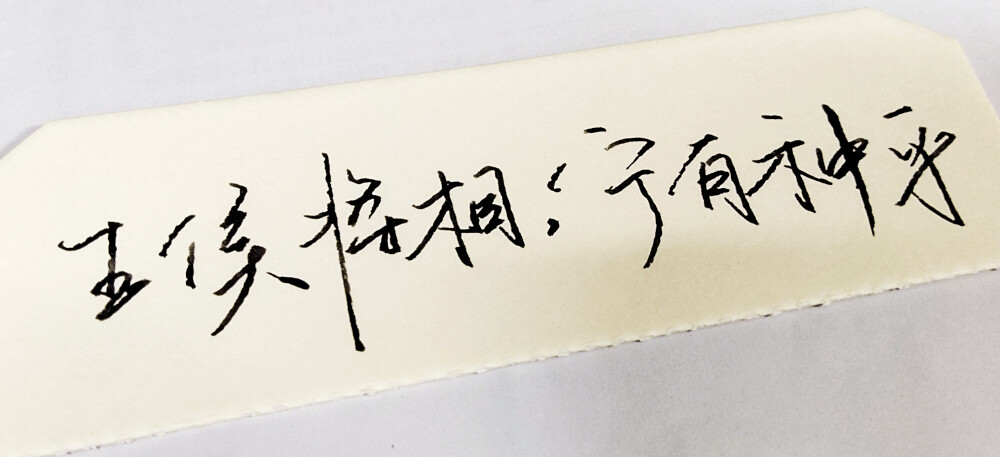 王侯将相;宁有种乎